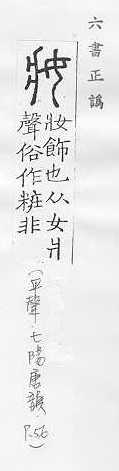 六書正譌
妝
妝飾也从女爿
聲俗作粧非
(平聲.七陽唐韻 P.56)